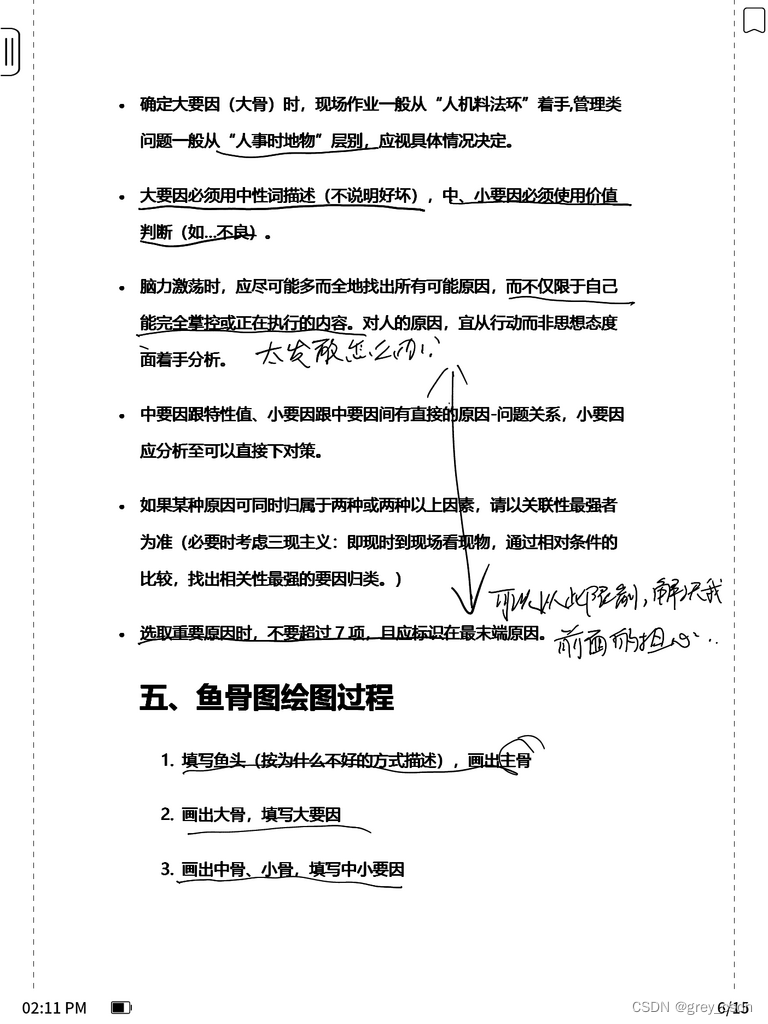 • 确定大要因（大骨）时，现场作业一般从“人机料法环”着手,管理类
问题一般从“人事时地物”层别，应视具体情况决定。
• 大要因必须用中性词描述（不说明好坏），中、小要因必须使用价值
判断（如...不良）。
• 脑力激荡时，应尽可能多而全地找出所有可能原因，而不仅限于自己
能完全掌控或正在执行的内容。对人的原因，宜从行动而非思想态度
面着手分析。 太发散怎么办
• 中要因跟特性值、小要因跟中要因间有直接的原因-问题关系，小要因
应分析至可以直接下对策。
• 如果某种原因可同时归属于两种或两种以上因素，请以关联性最强者
为准（必要时考虑三现主义：即现时到现场看现物，通过相对条件的
比较，找出相关性最强的要因归类。）
可以从此限制，解决我
• 选取重要原因时，不要超过 7 项，且应标识在最末端原因。
前面的担心..
五、鱼骨图绘图过程
1. 填写鱼头（按为什么不好的方式描述），画出主骨
2. 画出大骨，填写大要因
3. 画出中骨、小骨，填写中小要因
02:11 PM
6/15